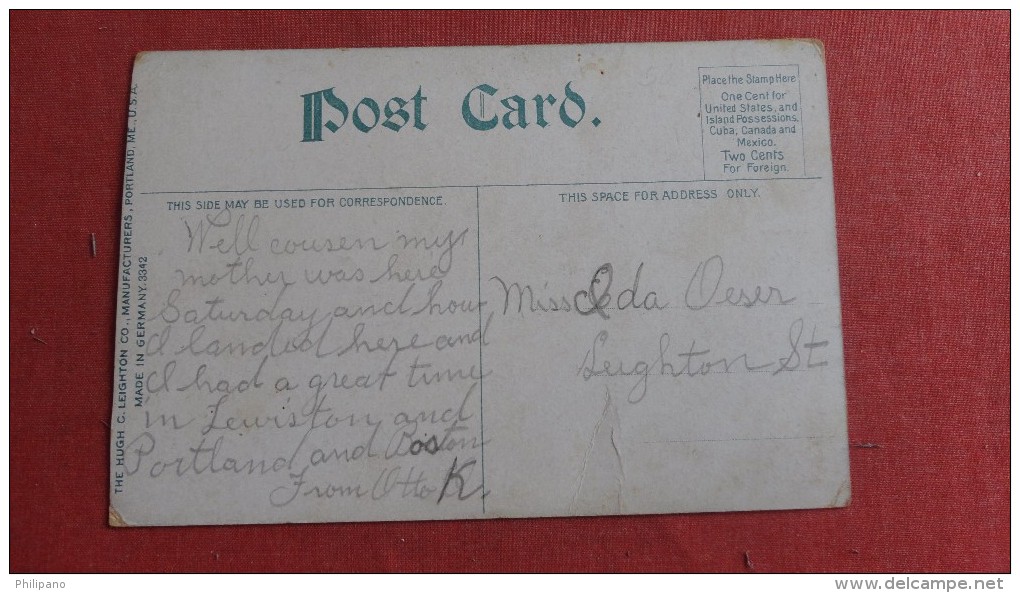 Post Card.
Place the Stamp Here
One Cent for
United States, and
Island Possessions,
Cuba, Canada and
Mexico.
Two Cents
For Foreign.
THIS SIDE MAY BE USED FOR CORRESPONDENCE.
THIS SPACE FOR ADDRESS ONLY.
Well cousen my
mother was here
Saturday and how
I landed here and
I had a great time
in Lewiston and
Portland and Boston
From Otto K.
Miss Ida Oeser
Leighton St
THE HUGH C. LEIGHTON CO., MANUFACTURERS, PORTLAND, ME., U.S.A.
MADE IN GERMANY. 3342
Philipano
www.delcampe.net